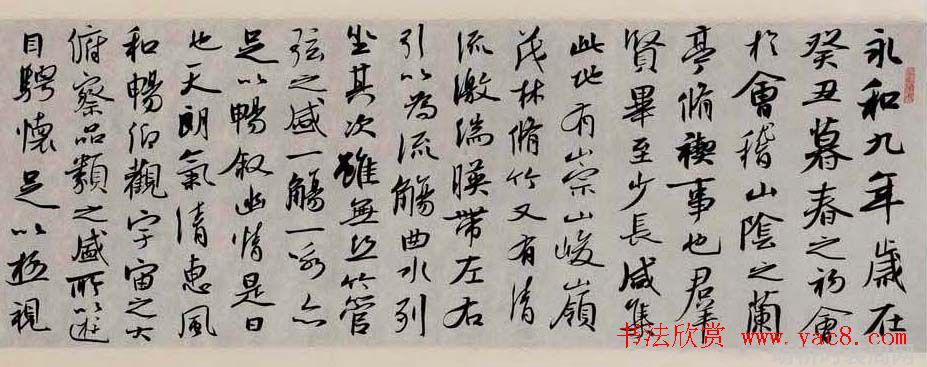 永和九年歲在
癸丑暮春之初會
於會稽山陰之蘭
亭脩禊事也羣
賢畢至少長咸集
此地有崇山峻嶺
茂林脩竹又有清
流激湍暎帶左右
引以為流觴曲水列
坐其次雖無絲竹管
弦之盛一觴一詠亦
足以暢敘幽情是日
也天朗氣清惠風
和暢仰觀宇宙之大
俯察品類之盛所以遊
目騁懷足以極視
书法欣赏 www.yac8.com